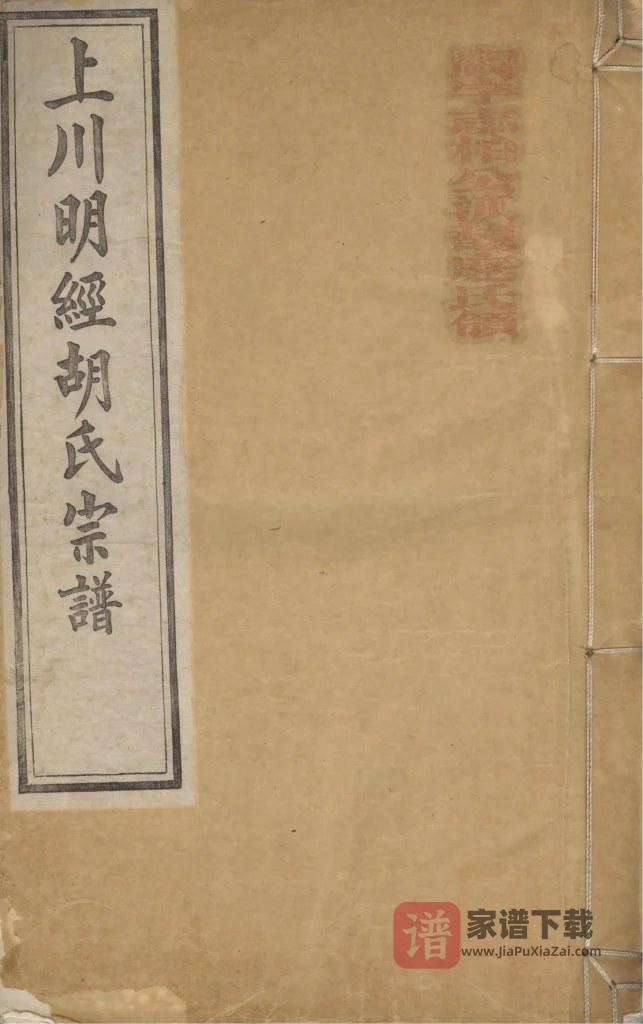 上川明經胡氏宗譜
字志柏公派
氏領
谱
家谱下载
www.JiaPuXiaZai.com